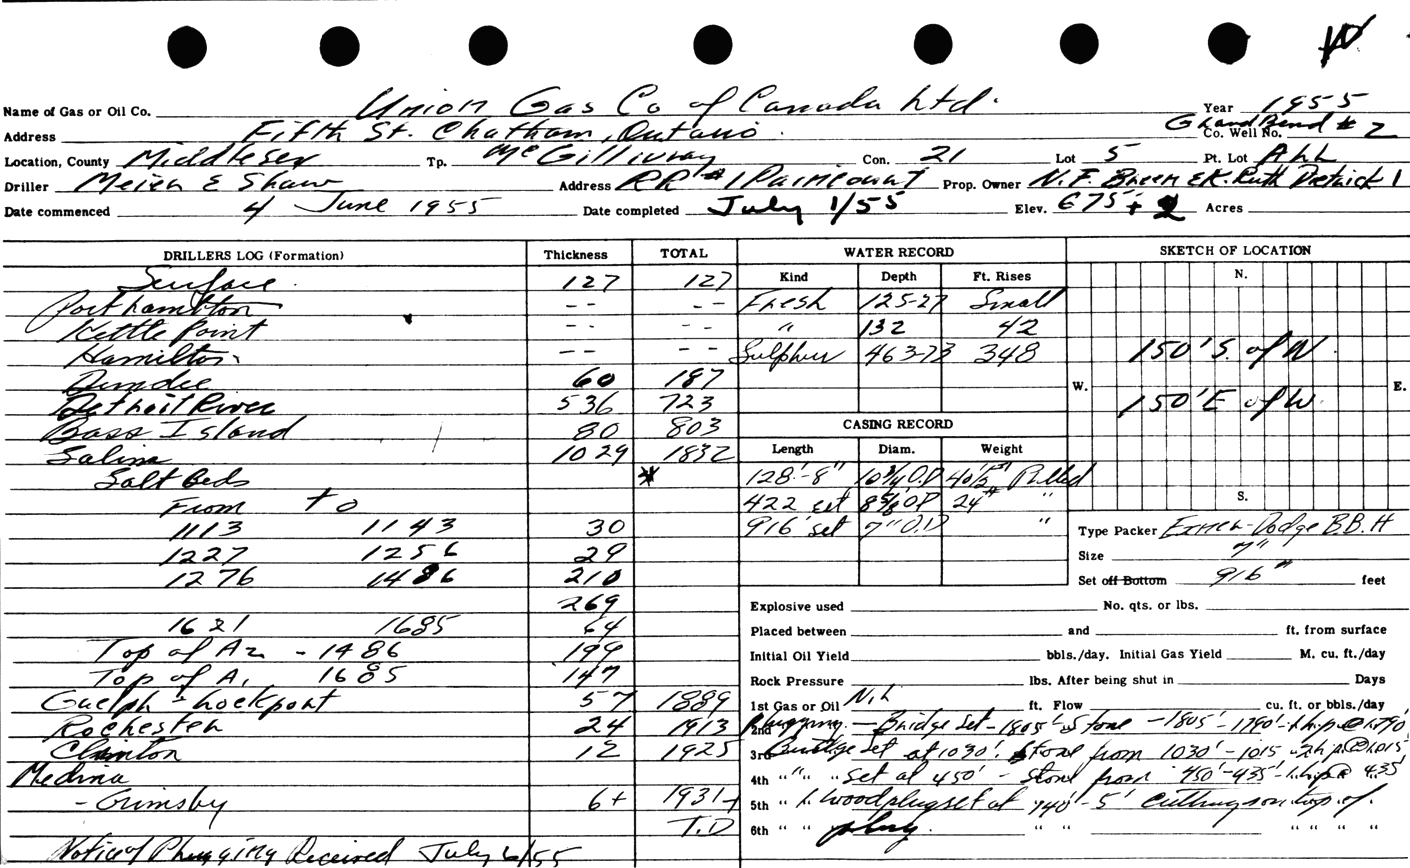 Name of Gas or Oil Co. Union Gas Co of Canada Ltd. Year 1955
Address Fifth St. Chatham, Ontario Co. Well No. Grand Bend # 2
Location, County Middlesex Tp. McGillivray Con. 21 Lot 5 Pt. Lot All
Driller Meien & Shaw Address RR #1 Paincourt Prop. Owner N.F. Breen & K. Ruth Dietrick 1
Date commenced 4 June 1955 Date completed July 1/55 Elev. 675+ Acres
DRILLERS LOG (Formation) Thickness TOTAL WATER RECORD SKETCH OF LOCATION
Kind Depth Ft. Rises N.
Surface 127 127
Port hamilton -- -- Fresh 125-27 Small
Kettle Point -- -- " 132 42
Hamilton -- -- Sulphur 463-73 348 150' S. of N
Dundee 60 187 W. E.
Detroit River 536 723 150' E of W.
Bass Island 80 803 CASING RECORD
Salina 1029 1832 Length Diam. Weight
Salt Beds * 128'-8" 10 3/4 O.D 40 1/2# Pulled
From to 422 set 8 5/8 O.D 24# " S.
1113 1143 30 916' set 7" O.D " Type Packer Dodge B.B.H
1227 1256 29 Size 7"
1276 1486 210 Set off Bottom 916" feet
269 Explosive used No. qts. or lbs.
1621 1685 64 Placed between and ft. from surface
Top of A2 - 1486 199 Initial Oil Yield bbls./day. Initial Gas Yield M. cu. ft./day
Top of A1 1685 147 Rock Pressure lbs. After being shut in Days
Guelph - Lockport 57 1889 1st Gas or Oil Nil ft. Flow cu. ft. or bbls./day
Rochester 24 1913 2nd Plugging - Bridge Set - 1805' Stone - 1805'-1790'-1 hip @ 1790'
Clinton 12 1925 3rd Bridge set at 1030'. Stone from 1030'-1015 - 2 hip @ 1015'
Medina 4th " " " set at 450' - stone from 450'-435'-1 hip @ 435'
- Grimsby 6+ 1931+ 5th " 1. Wood plug set at 140'-5' cuttings on top of.
T.D 6th " " plug. " " " " " "
Notice of Plugging Received July 6/55